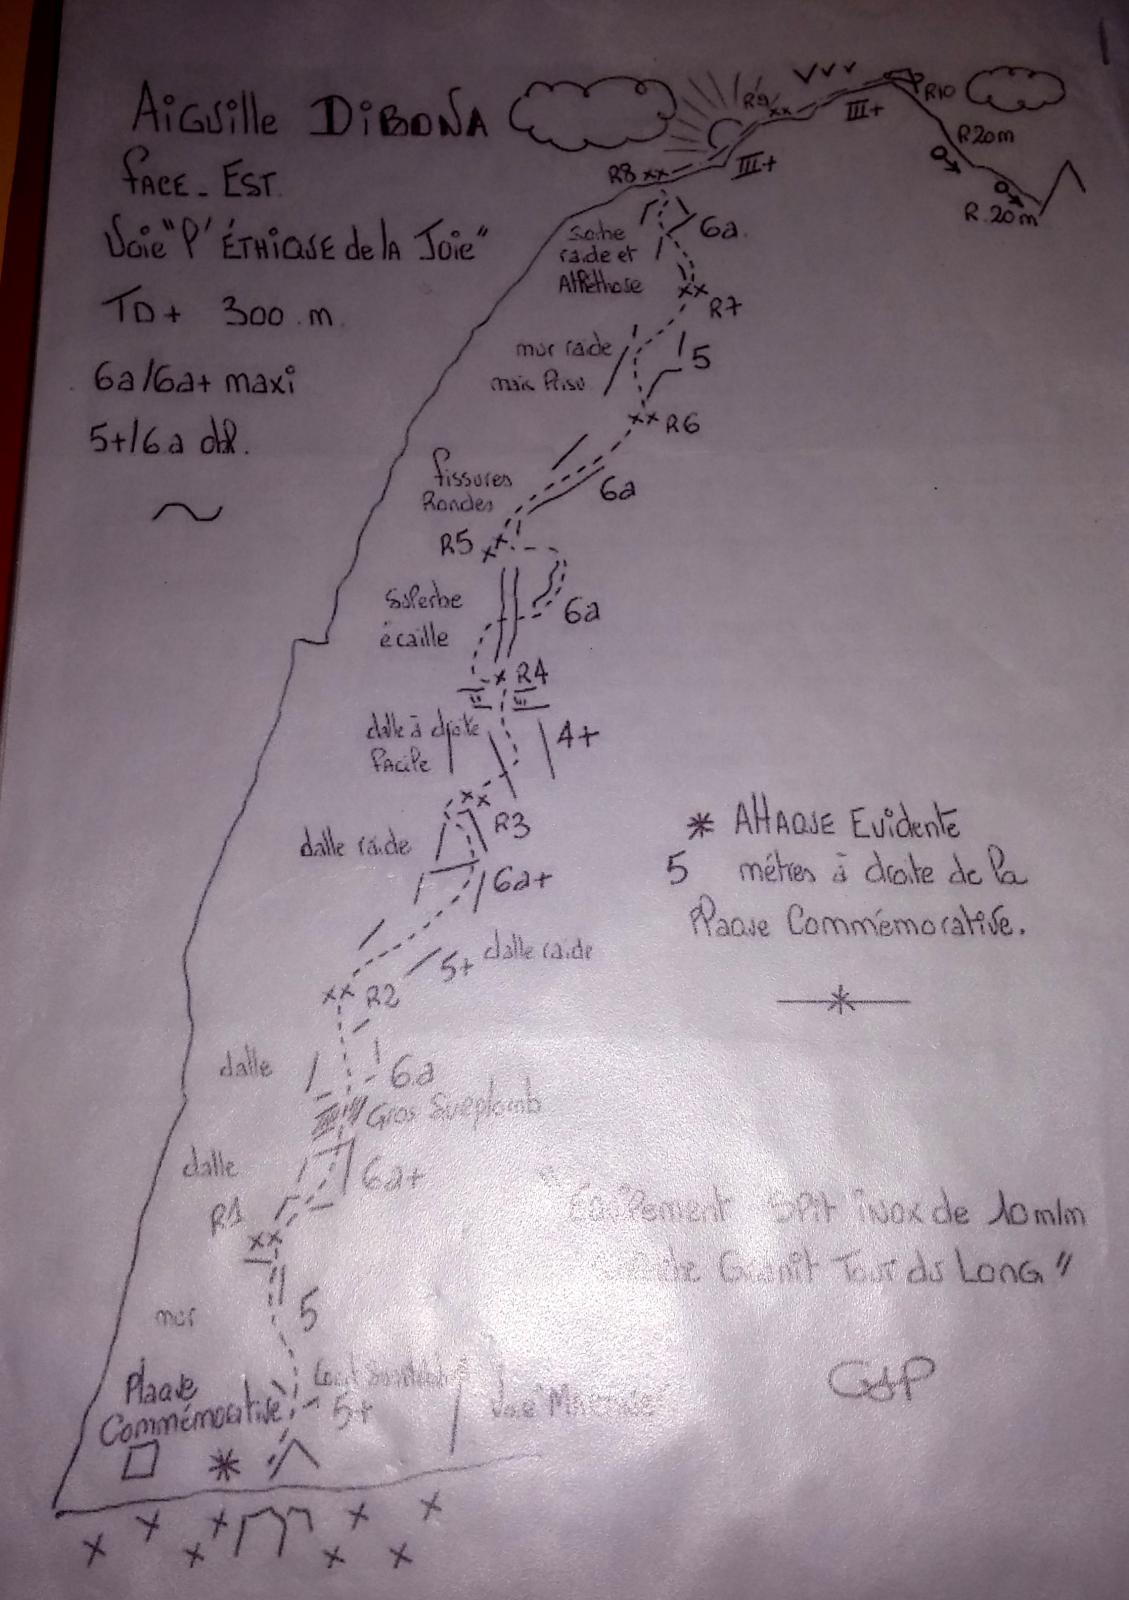 AiGuille DiBONA
FACE - EST.
Voie "l'ÉTHIQUE de lA Joie"
TD+ 300 m.
6a/6a+ maxi
5+/6a obl.
R10
R9 xx
III+
R20m
R8 xx
III+
R.20m
6a.
Sortie
raide et
Athlétique
xx
R7
mur raide
mais Prisu
5
xx R6
fissures
Rondes
6a
R5 xx
Superbe
écaille
6a
x R4
dalle à droite
facile
4+
xx
R3
dalle raide
6a+
* ATTAQUE Evidente
5 mètres à droite de la
Plaque Commémorative.
5+ dalle raide
xx R2
dalle
6a
Gros Surplomb
dalle
6a+
R1
xx
Equipement Spit inox de 10 m/m
Granit Tour du Long"
mur
5
Plaque
Commémorative
5+
Voie
GJP